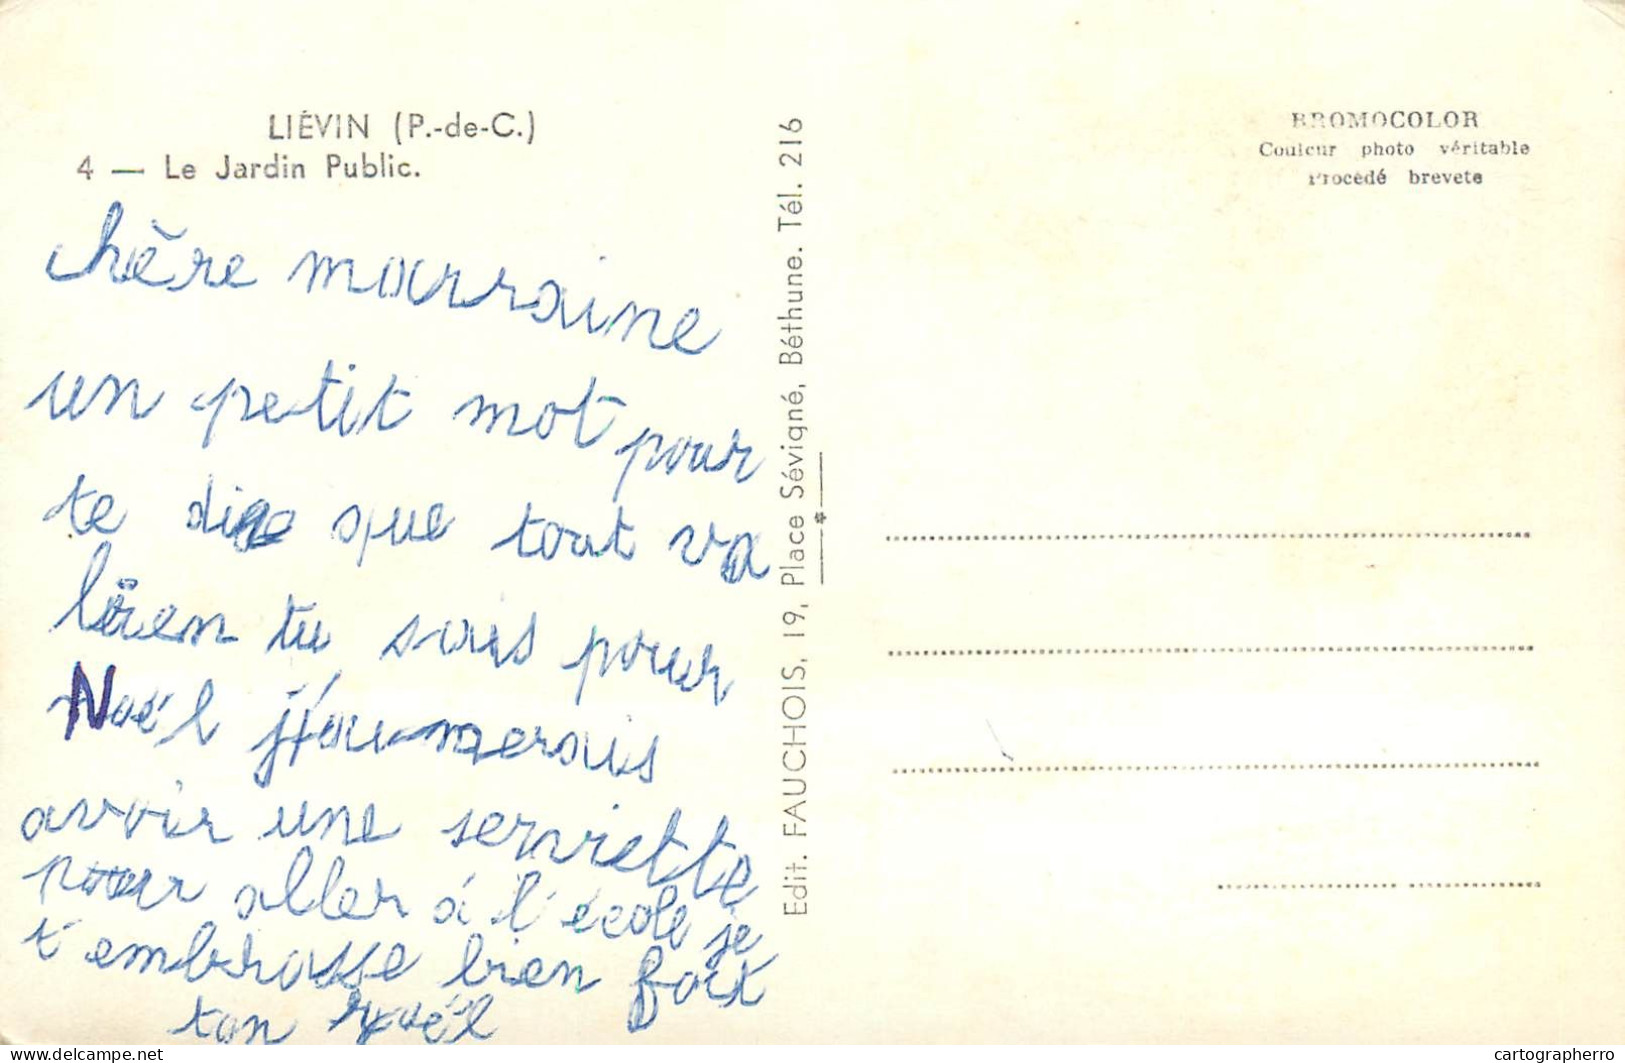 LIÉVIN (P.-de-C.)
4 — Le Jardin Public.
chère marraine
un petit mot pour
te dire que tout va
bien tu sais pour
Noél j'aumerais
avoir une serviette
pour aller à l'école je
t'embrasse bien fort
ton Noél
Edit. FAUCHOIS, 19, Place Sévigné, Béthune. Tél. 216
BROMOCOLOR
Couleur photo véritable
Procédé breveté
cartographerro